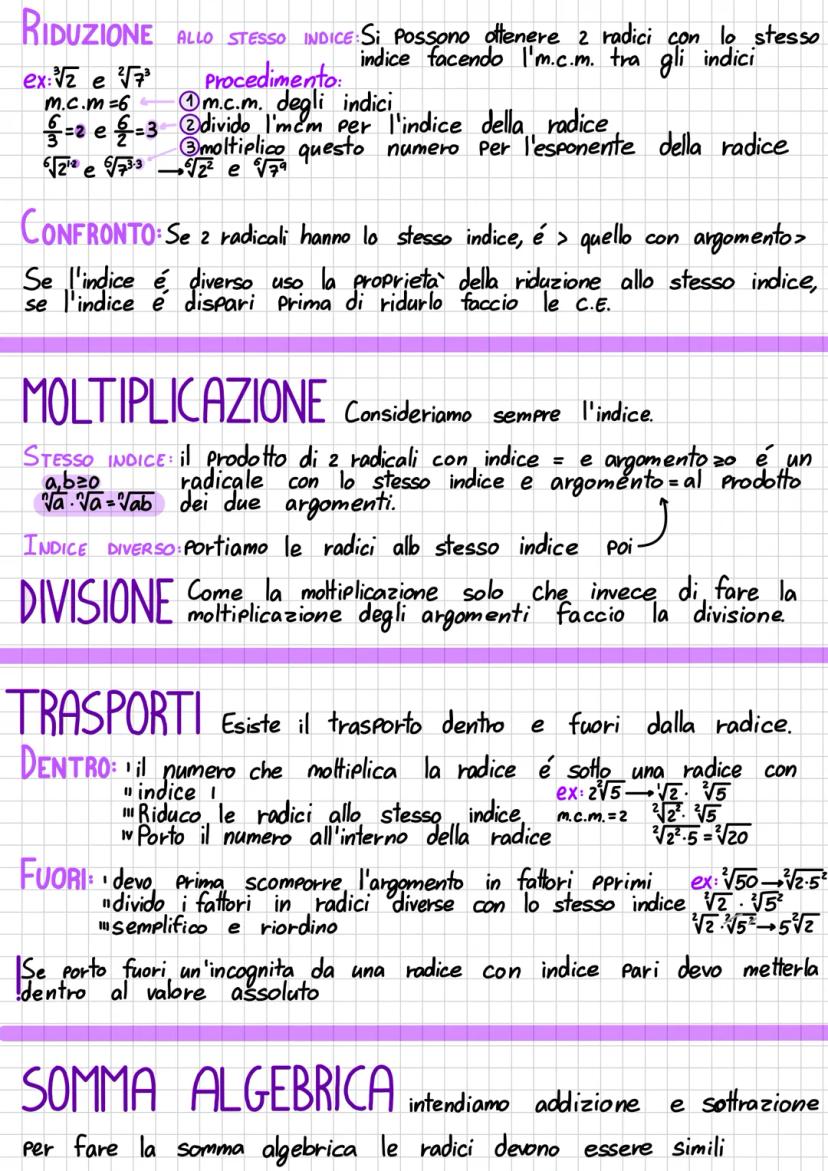 RIDUZIONE ALLO STESSO INDICE: Si possono ottenere 2 radici con lo stesso
indice facendo l'm.c.m. tra gli indici
ex: ³√2 e ²√7³ Procedimento:
m.c.m = 6 ① m.c.m. degli indici
6/3 = 2 e 6/2 = 3 ② divido l'mcm per l'indice della radice
③ moltiplico questo numero per l'esponente della radice
⁶√2¹·² e ⁶√7³·³ → ⁶√2² e ⁶√7⁹
CONFRONTO: Se 2 radicali hanno lo stesso indice, é > quello con argomento >
Se l'indice é diverso uso la proprietà della riduzione allo stesso indice,
se l'indice é dispari prima di ridurlo faccio le C.E.
MOLTIPLICAZIONE Consideriamo sempre l'indice.
STESSO INDICE: il prodotto di 2 radicali con indice = e argomento ≥0 é un
a,b≥0 radicale con lo stesso indice e argomento = al prodotto
ⁿ√a · ⁿ√a = ⁿ√ab dei due argomenti.
INDICE DIVERSO: portiamo le radici allo stesso indice poi
DIVISIONE Come la moltiplicazione solo che invece di fare la
moltiplicazione degli argomenti faccio la divisione.
TRASPORTI Esiste il trasporto dentro e fuori dalla radice.
DENTRO: I il numero che moltiplica la radice é sotto una radice con
II indice 1 ex: 2²√5 → ¹√2 · ²√5
III Riduco le radici allo stesso indice m.c.m. = 2 ²√2² · ²√5
IV Porto il numero all'interno della radice ²√2²·5 = ²√20
FUORI: I devo prima scomporre l'argomento in fattori pprimi ex: ²√50 → ²√2·5²
II divido i fattori in radici diverse con lo stesso indice ²√2 · ²√5²
III semplifico e riordino ²√2 · ²√5² → 5²√2
! Se porto fuori un'incognita da una radice con indice pari devo metterla
dentro al valore assoluto
SOMMA ALGEBRICA intendiamo addizione e sottrazione
per fare la somma algebrica le radici devono essere simili